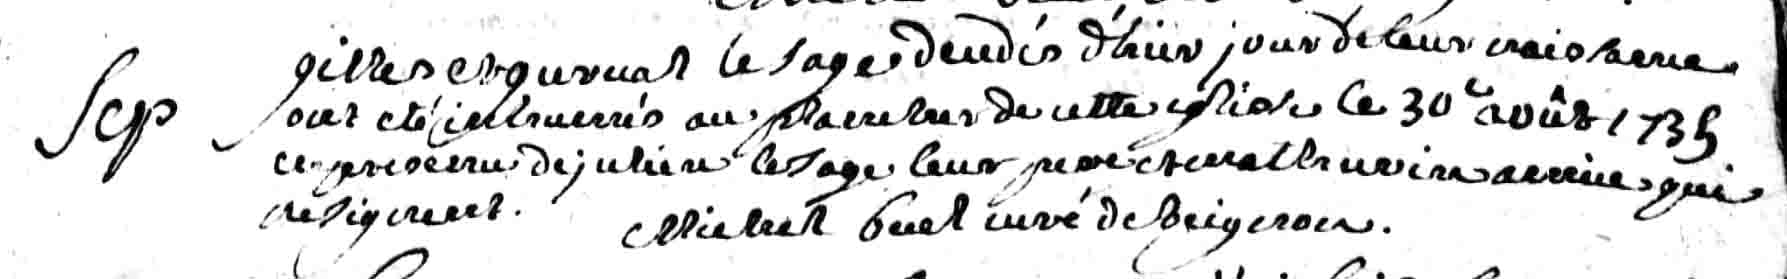 Sep gilles et gurval le sage decedés d'hier jour de leur naissance
ont eté inhumés au placeture de cette eglise le 30e août 1735
en presence de julien le sage leur pere et mathurin qui
ne signent. Michel Buel curé de Guignen.